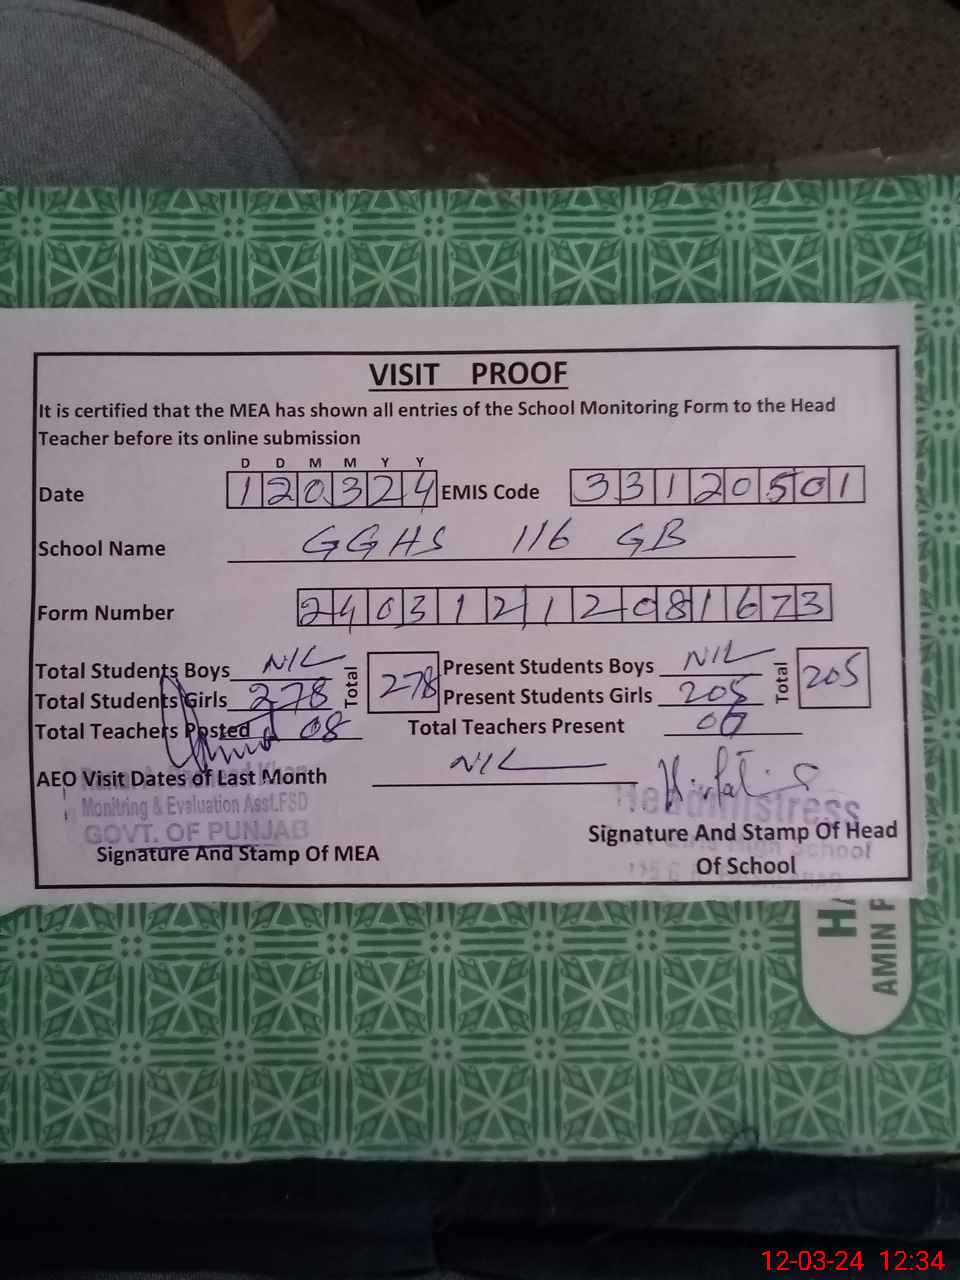 VISIT PROOF
It is certified that the MEA has shown all entries of the School Monitoring Form to the Head
Teacher before its online submission
D D M M Y Y
Date 120324 EMIS Code 33120501
School Name GGHS 116 GB
Form Number 24031212081673
Total Students Boys NIL Total 278 Present Students Boys NIL Total 205
Total Students Girls 278 Present Students Girls 205
Total Teachers Posted 08 Total Teachers Present
AEO Visit Dates of Last Month NIL
Monitring & Evaluation Asst.FSD
GOVT. OF PUNJAB
Headmistress
High School
Signature And Stamp Of MEA
Signature And Stamp Of Head
Of School
AMIN P
12-03-24 12:34